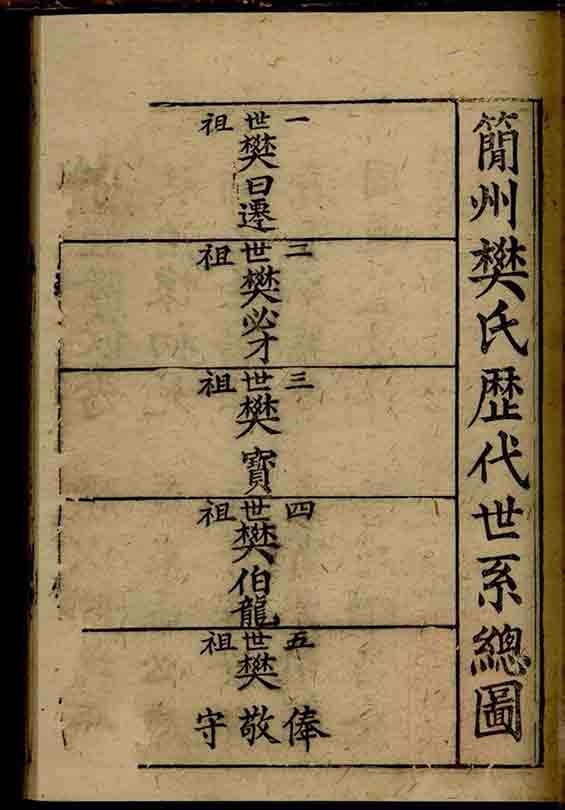 簡州樊氏歷代世系總圖
一世祖
樊曰遷
二世祖
樊必才
三世祖
樊寶
四世祖
樊伯龍
五世祖
樊俸
敬
守